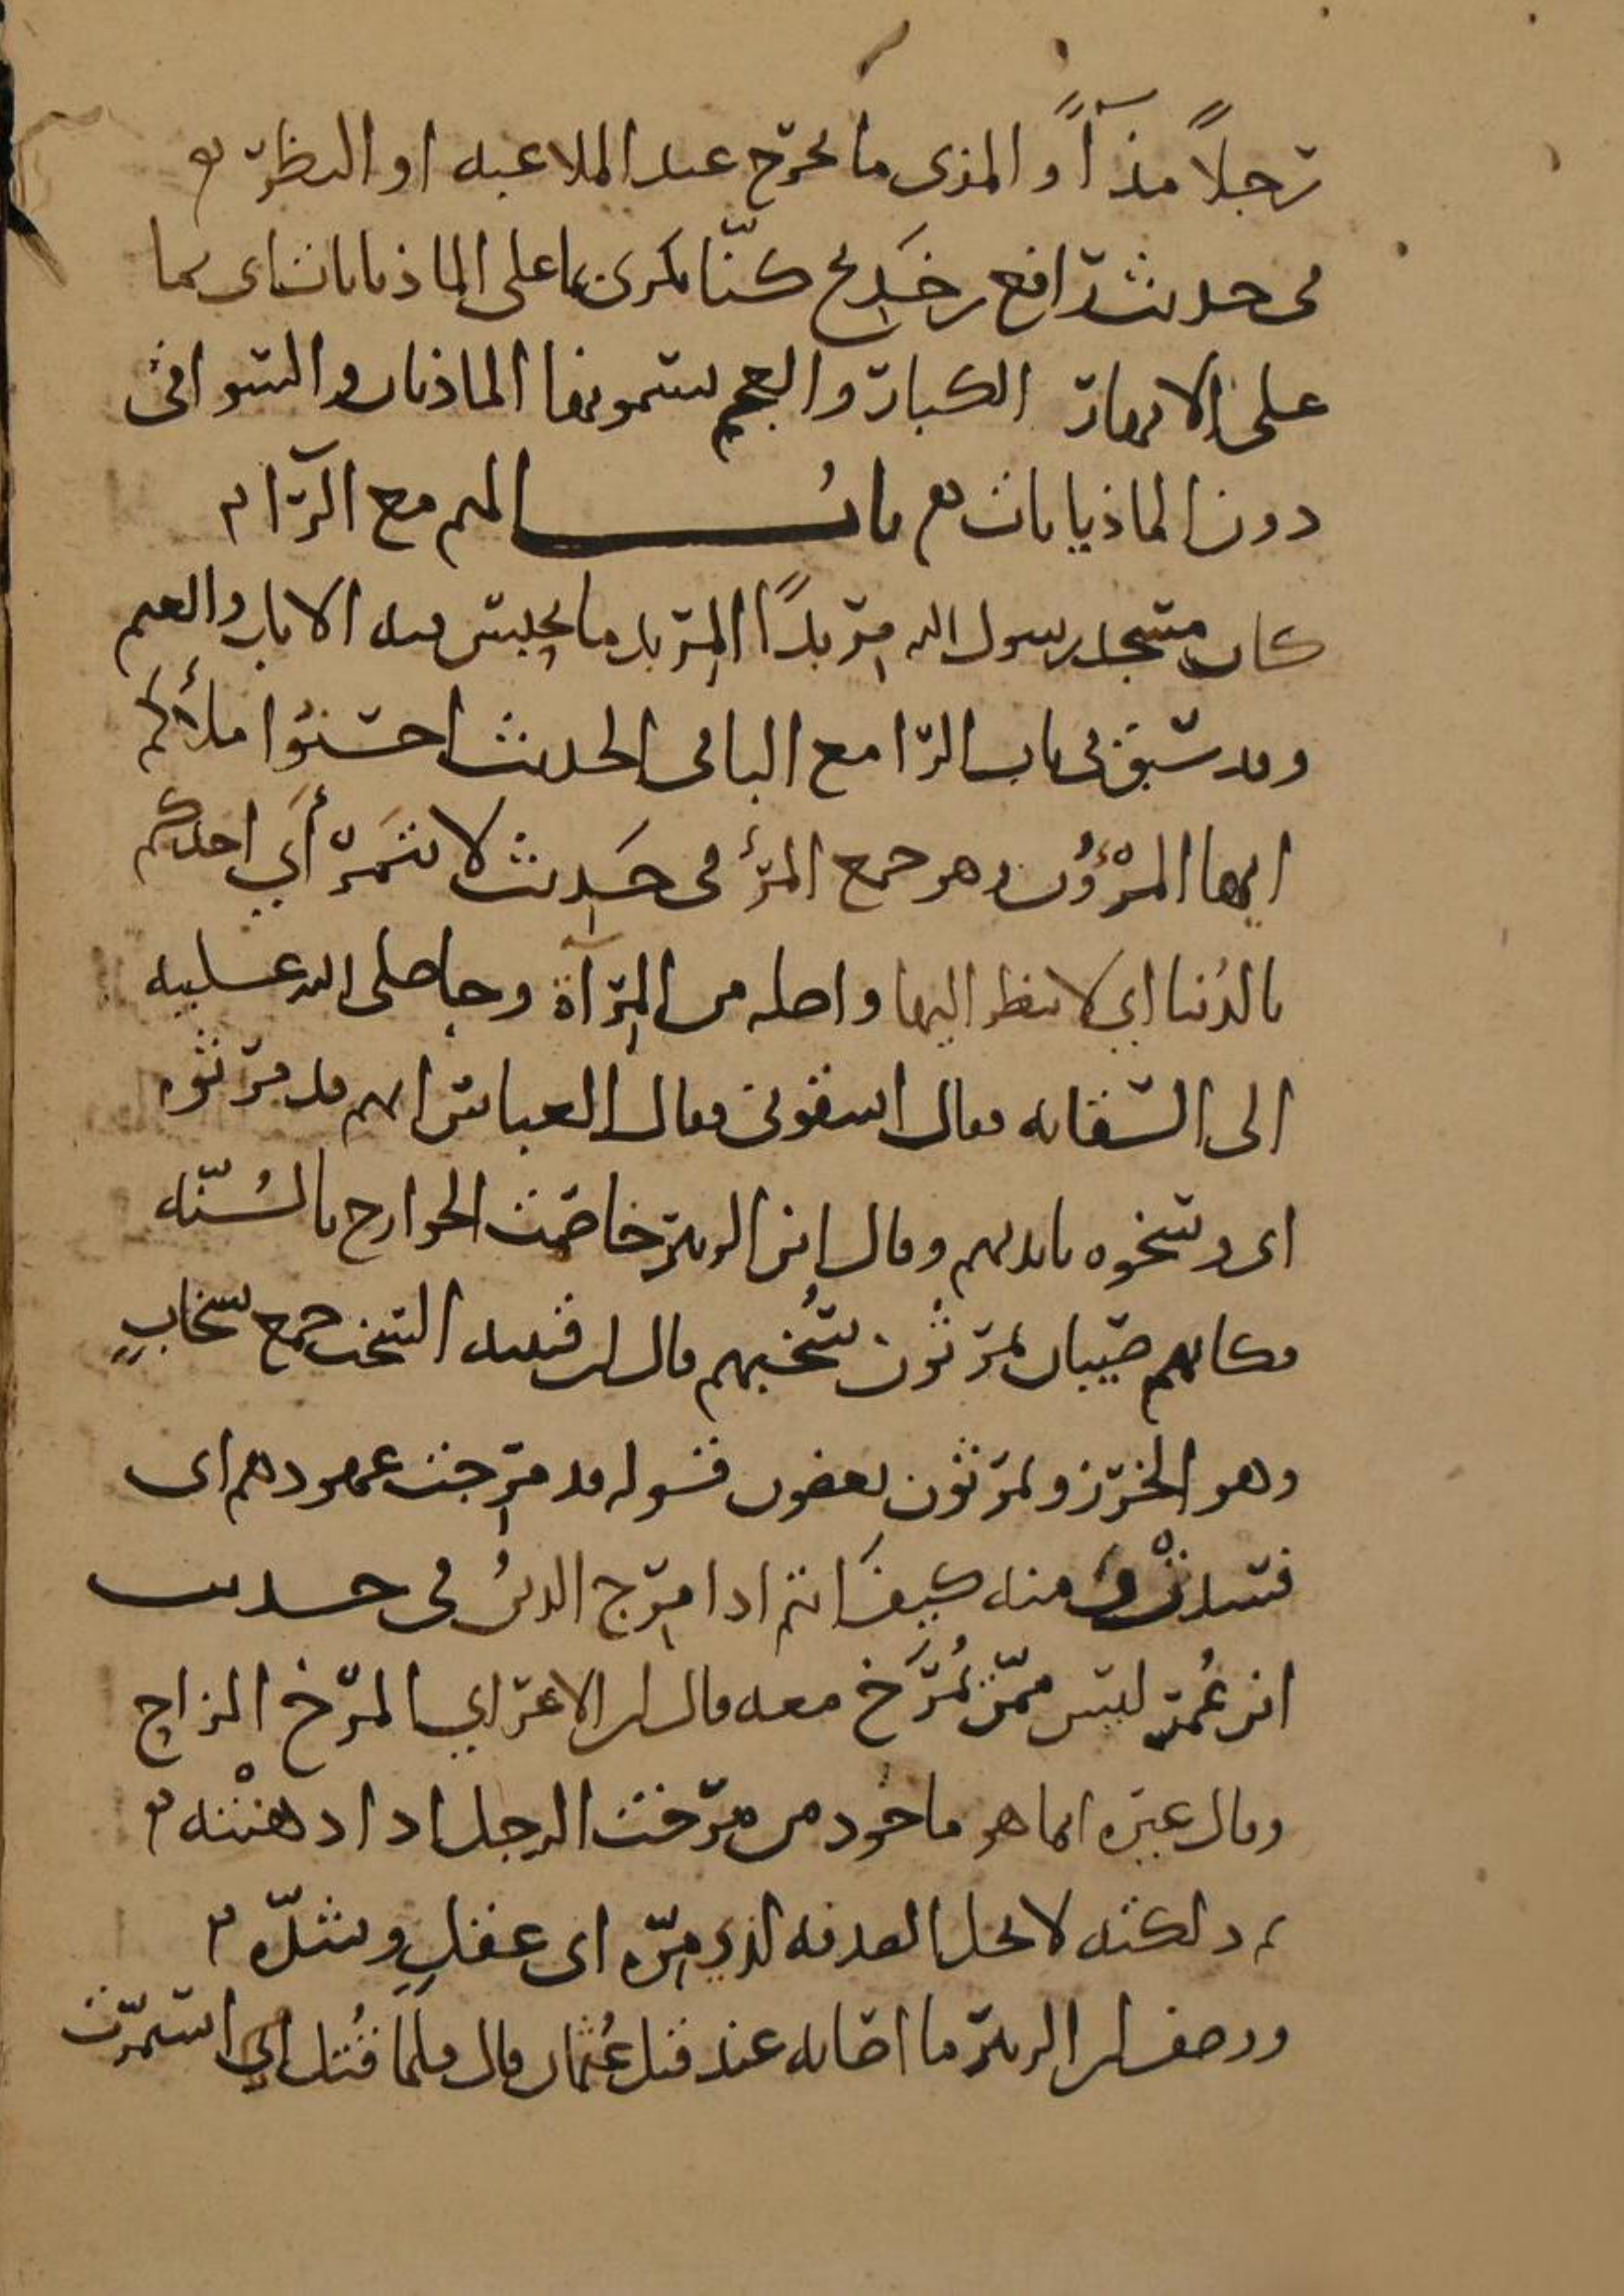 رجلاً مذآءً والمذى ما يخرج عند الملاعبه او النظر
فى حديث رافع بن خديج كنّا نكرى بما على الماذيانات اى بما
على الانهار الكبار والعجم يسمونها الماذيان والسواقى
دون الماذيانات باب الميم مع الرّا
كان مسجد رسول الله مِربدًا المِربد ما يحبس فيه الابل والغنم
وقد سبق فى باب الرّا مع البا فى الحديث احسنُوا ملأكم
ايها المرْؤُن وهو جمع المرء فى حَدِيث لا يتمَرّأَي احدكم
بالدُنيا اي لا ينظر اليها واصله من المِرآة وجا صلى الله عليه
الى السّقايه فقال اسقونى فقال العباس انهم قد مرثوه
اى وسّخوه بايديهم وقال ابن الزبير خاصمت الخوارج بالسُنّه
فكانهم صبيان يمرثون سُخبهم قال ابن قتيبه السخب جمع سخابٍ
وهو الخرز ويمرثون يعضون قوله قد مرِجت عهودهم اى
فسدت ومنه كيف انتم اذا مرِج الدينُ فى حديث
ابن عُمر ليس ممّن يُمرَّخ معه قال ابن الاعرابي المرّخ المزاح
وقال غيره انما هو ماخوذ من مرّخت الرجل اذا دهنْته
ثم دلكته لا تحل الصدقه لذي مِرّه اى عقلٍ وشدّه
ووصف ابن الزبير ما اصابه عند قتل عُثمان قال فلما قُتل ابي استمرّت